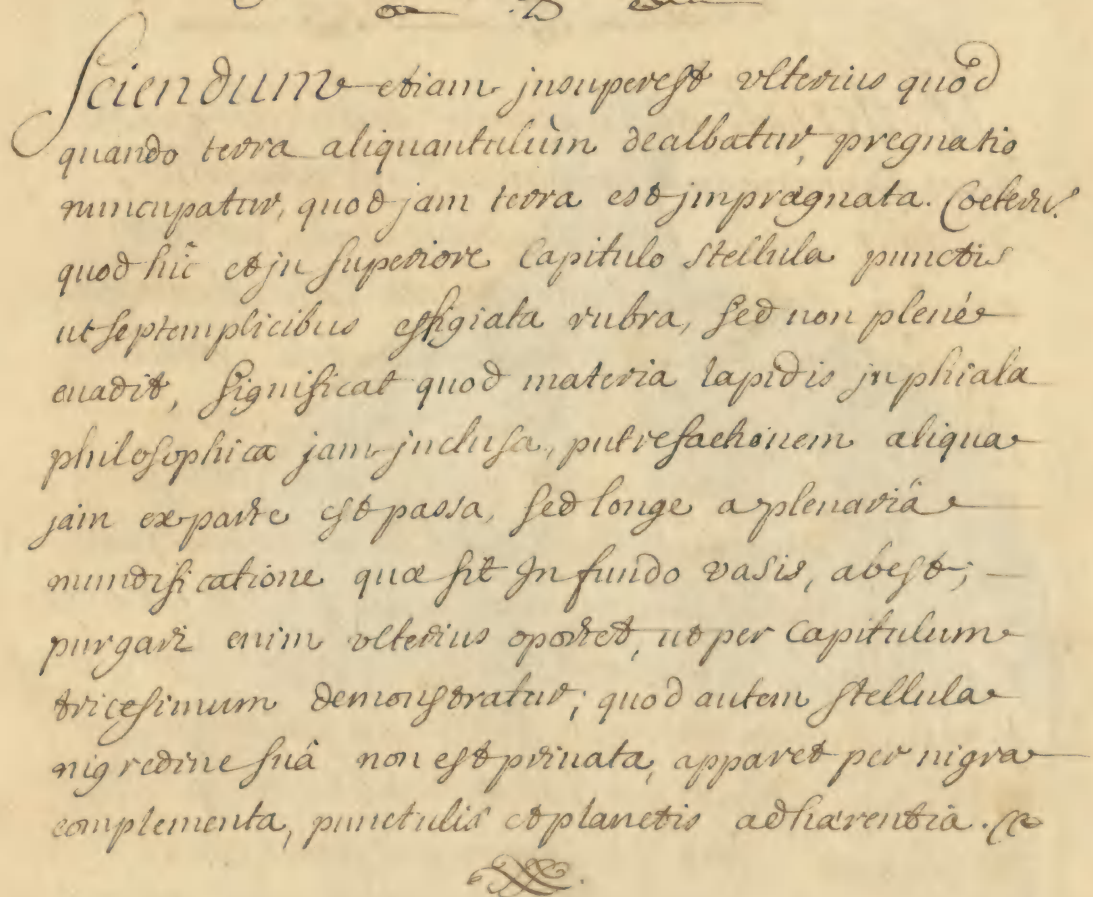 Sciendum etiam jnsuperest vlterius quod
quando terra aliquantulùm dealbatur, pregnatio
nuncupatur, quod jam terra est jmprægnata. Coeterù.
quod hîc et jn superiore Capitulo stellula punctis
ut septemplicibus effigiata rubra, sed non plenè
euadit, significat quod materia lapidis jn phiala
philosophica jam jnclusa, putrefactionem aliqua
jam ex parte est passa, sed longe a plenariâ
mundificatione quæ fit Jn fundo vasis, abest;
purgari enim vlterius oportet, ut per Capitulum
tricesimum demonstratur; quod autem stellula
nigredine suâ non est priuata, apparet per nigra
complementa, punctulis et planetis adhærentia.